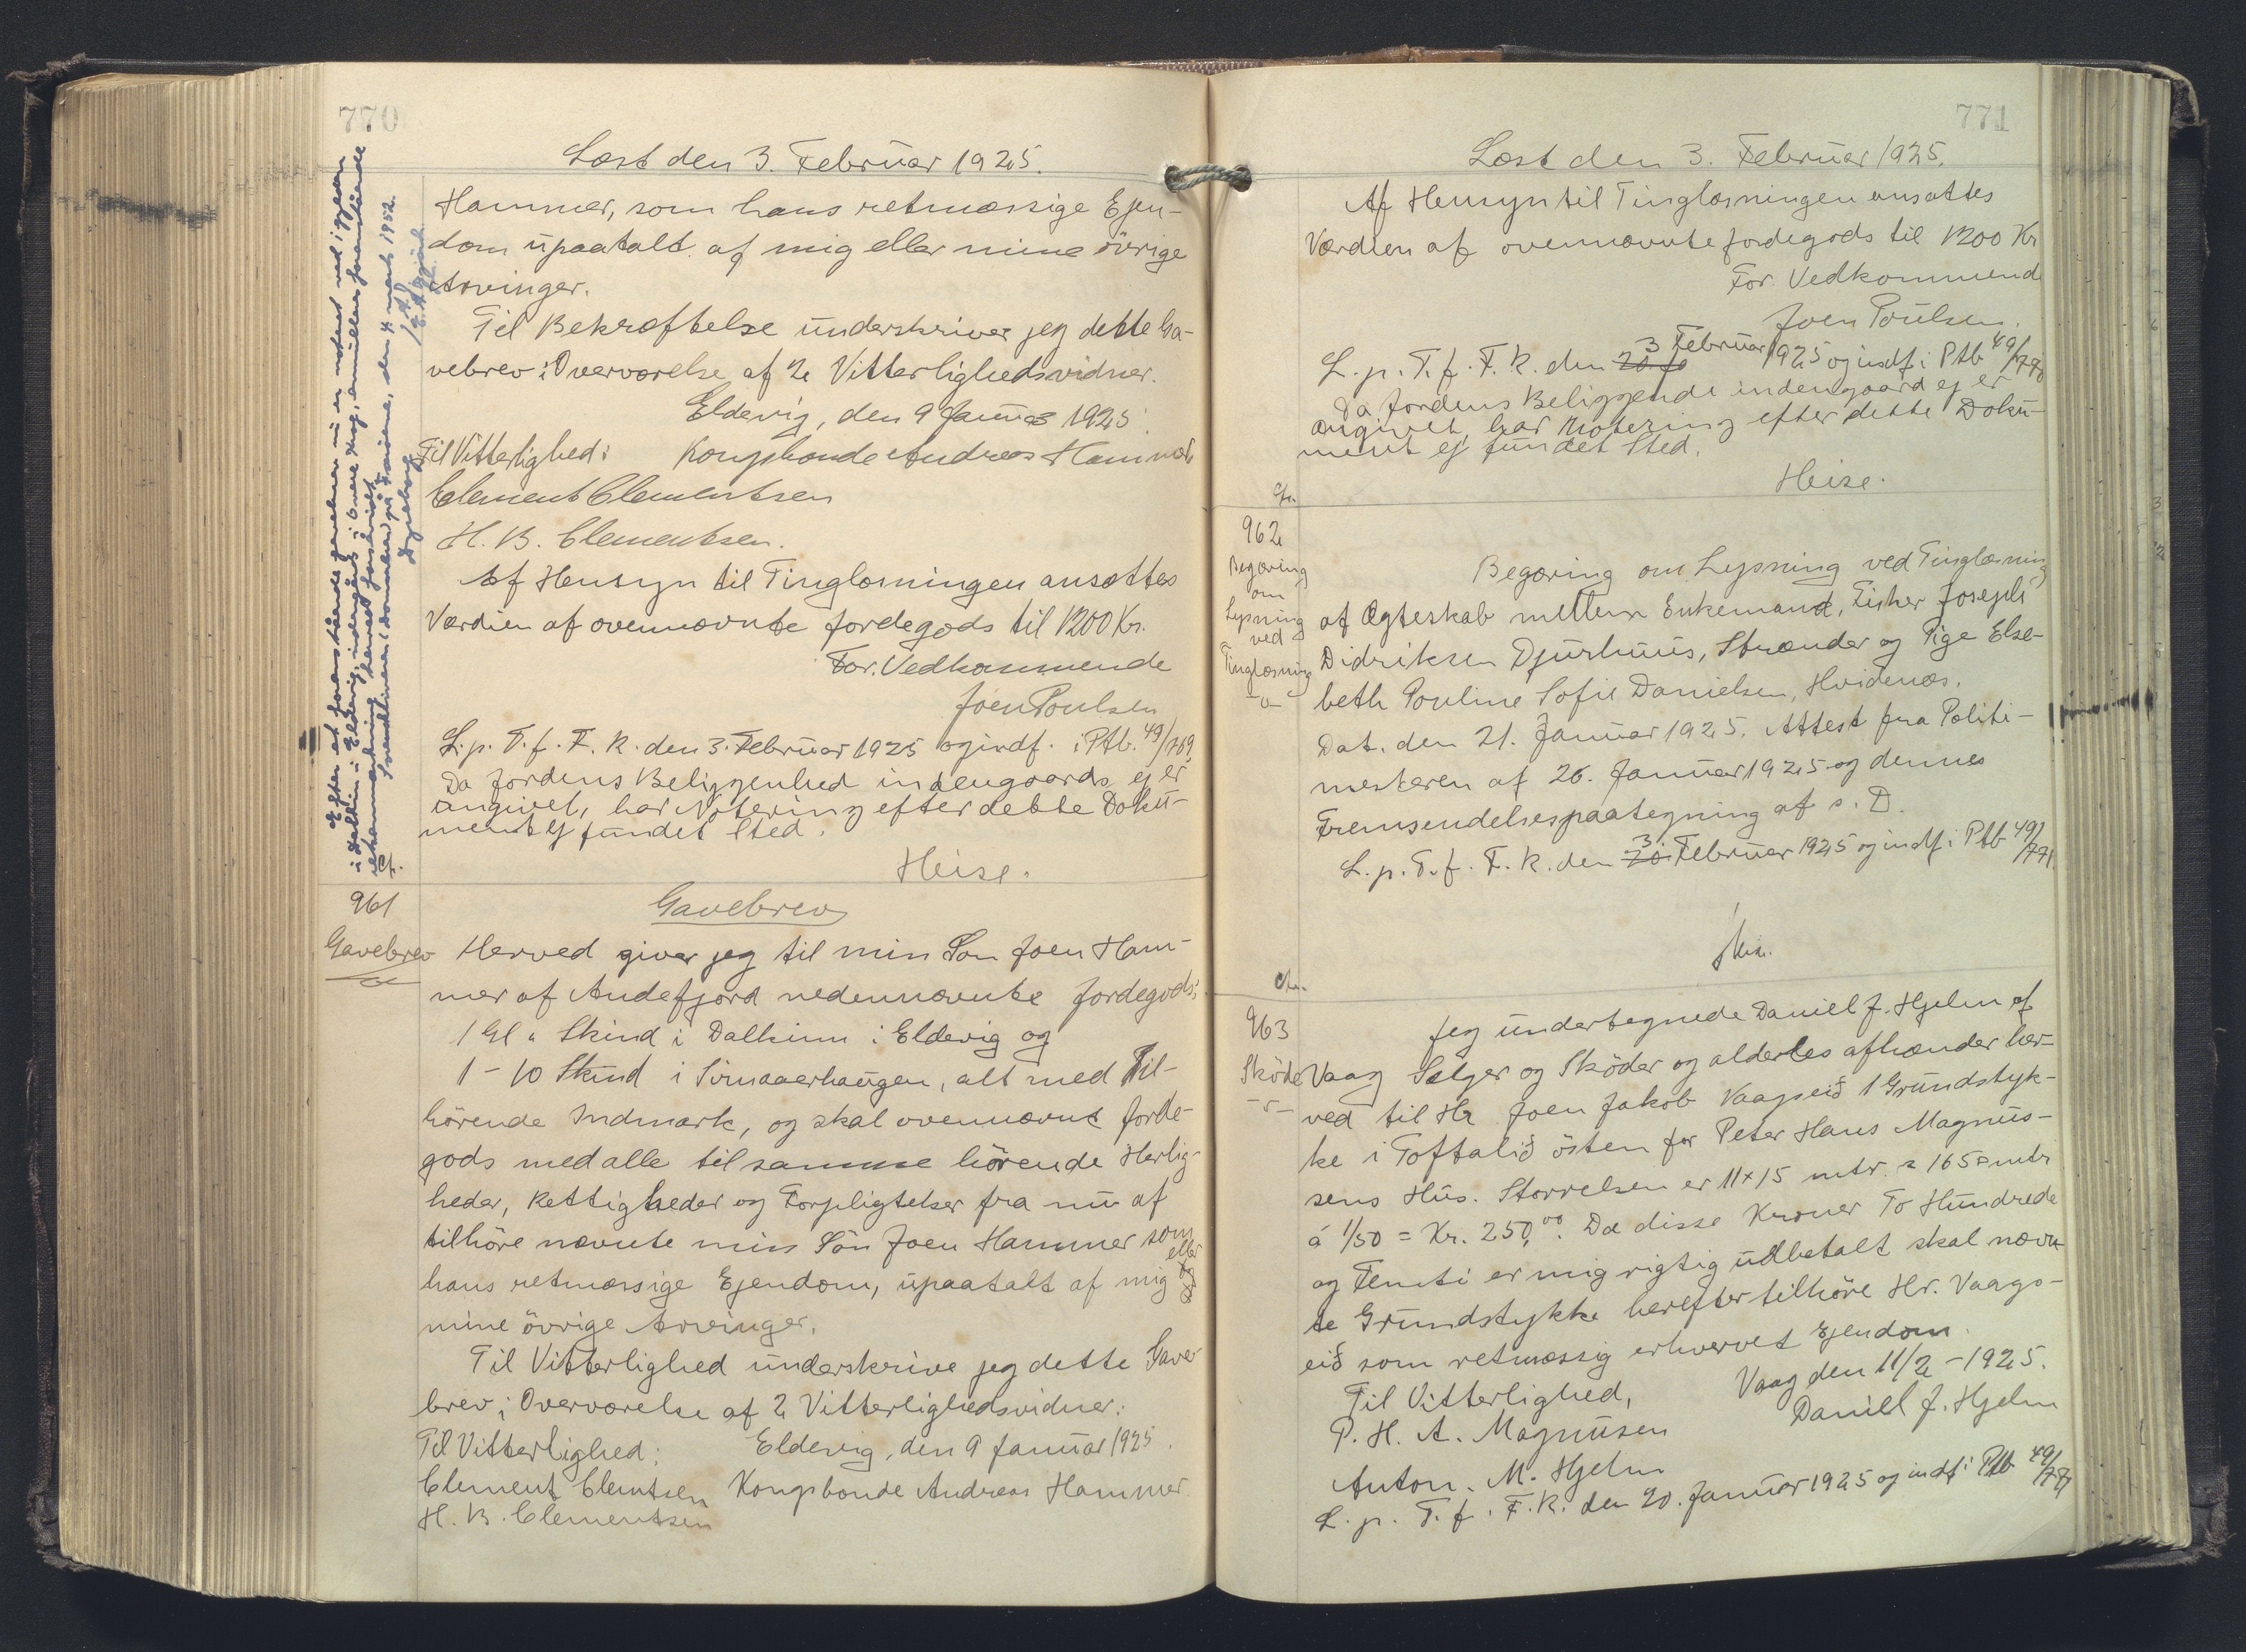 770
Læst den 3. Februar 1925.
Hammer, som hans retmæssige Ejen-
dom upaatalt af mig eller mine övrige
Arvinger.
Til Bekræftelse underskriver jeg dette Ga-
vebrev i Overværelse af 2 Vitterlighedsvidner.
Eldevig, den 9 Januar 1925.
Til Vitterlighed: Kongsbonde Andreas Hammer
Clement Clementsen
H. B. Clementsen.
Af Hensyn til Tinglæsningen ansættes
Værdien af ovennævnte Jordegods til 1200 Kr.
For Vedkommende
Joen Poulsen
L. p. T. f. F. R. den 3. Februar 1925 og indf. i Ptb. 49/769
Da Jordens Beliggenhed indengaards ej er
angivet, har Notering efter dette Doku-
ment ej fundet Sted.
Heise.
Efter at foranstående gavebrev nu er noteret ved
i Dalhin i Eldevig, indengards i annulleres foranstående
hermed
den 4 marts 1952.
Cfr.
961
Gavebrev
Gavebrev
Herved giver jeg til min Søn Joen Ham-
mer af Andefjord nedennævnte Jordegods:
1 Gl " Skind i Dalhinn i Eldevig og
1 - 10 Skind i , alt med Til-
hörende Indmark, og skal ovennævnt Jorde-
gods med alle til samme hörende Herlig-
heder, Rettigheder og Forpligtelser fra nu af
tilhöre nævnte min Sön Joen Hammer som
hans retmæssige Ejendom, upaatalt af mig eller
mine övrige Arvinger.
Til Vitterlighed underskrive jeg dette Gave-
brev i Overværelse af 2 Vitterlighedsvidner:
Til Vitterlighed: Eldevig, den 9 Januar 1925.
Clement Clemtsen Kongsbonde Andreas Hammer
H. B. Clementsen
771
Læst den 3. Februar 1925.
Af Hensyn til Tinglæsningen ansættes
Værdien af ovennævnte Jordegods til 1200 Kr
For Vedkommende
Joen Poulsen.
L. p. T. f. F. R. den 3 Februar 1925 og indf. i Ptb 49/770
Da Jordens Beliggende indengaard ej er
angivet, har Notering efter dette Doku-
ment ej fundet Sted.
Heise.
Cfr.
962
Begæring
om
Lysning
ved
Tinglæsning
Begæring om Lysning ved Tinglæsning
af Ægteskab mellem Enkemand, Fisker Joseph
Didriksen Djurhuus, Strænder og Pige Else-
beth Pouline Sofie Danielsen, Hvidenæs.
Dat. den 21. Januar 1925. Attest fra Politi-
mesteren af 26. Januar 1925 og dennes
Fremsendelsespaategning af s. D.
L. p. T. f. F. R. den 3. Februar 1925 og indf. i Ptb 49/771
Heise.
Cfr.
963
Sköde
Jeg undertegnede Daniel J. Hjelm af
Vaag Sælger og Sköder og aldeles afhænder her-
ved til Hr Joen Jakob Vaagseið 1 Grundstyk-
ke i Toftalið östen for Peter Hans Magnus-
sens Hus. Storrelsen er 11 x 15 mtr. = 165 □ mtr
á 1/50 = Kr. 250,00. Da disse Kroner To Hundrede
og Femti er mig rigtig udbetalt skal nævn
te Grundstykke herefter tilhöre Hr. Vaags-
eið som retmæssig erhvervet Ejendom.
Vaag den 11/2 - 1925.
Til Vitterlighed, Daniel J. Hjelm
P. H. A. Magnusen
Anton. M. Hjelm
L. p. T. f. F. R. den 20. Januar 1925 og indf. i Ptb 49/771